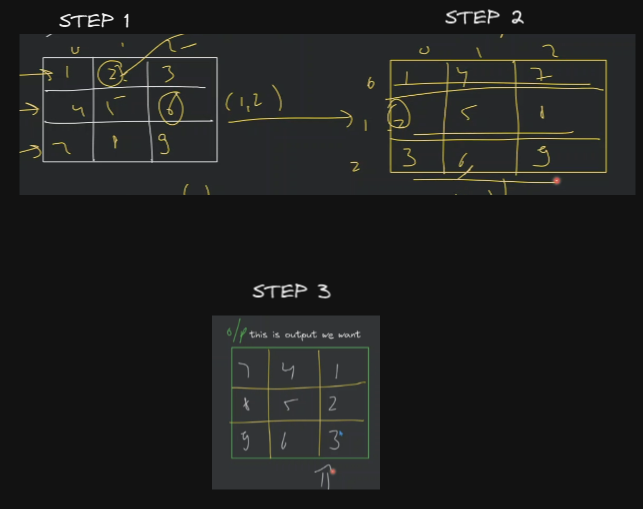 STEP 1
0 1 2
1 2 3
4 5 6
7 8 9
(1,2)
STEP 2
0 1 2
0 1 4 7
1 2 5 8
2 3 6 9
STEP 3
o/p this is output we want
7 4 1
8 5 2
9 6 3